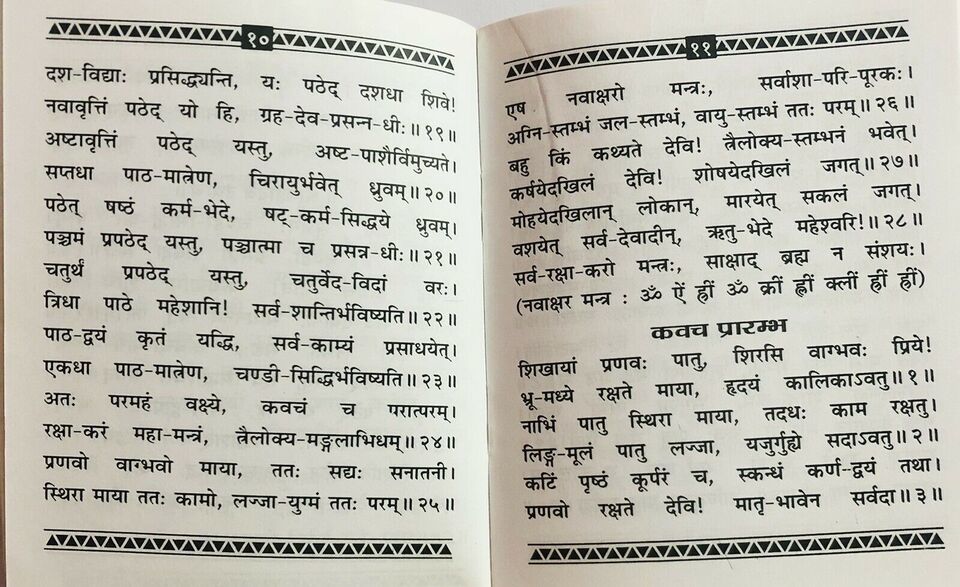 १०
दश-विद्याः प्रसिद्ध्यन्ति, यः पठेद् दशधा शिवे!
नवावृत्तिं पठेद् यो हि, ग्रह-देव-प्रसन्न-धीः॥१९॥
अष्टावृत्तिं पठेद् यस्तु, अष्ट-पाशैर्विमुच्यते।
सप्तधा पाठ-मात्रेण, चिरायुर्भवेत् ध्रुवम्॥२०॥
पठेत् षष्ठं कर्म-भेदे, षट्-कर्म-सिद्धये ध्रुवम्।
पञ्चमं प्रपठेद् यस्तु, पञ्चात्मा च प्रसन्न-धीः॥२१॥
चतुर्थं प्रपठेद् यस्तु, चतुर्वेद-विदां वरः।
त्रिधा पाठे महेशानि! सर्व-शान्तिर्भविष्यति॥२२॥
पाठ-द्वयं कृतं यद्धि, सर्व-काम्यं प्रसाधयेत्।
एकधा पाठ-मात्रेण, चण्डी-सिद्धिर्भविष्यति॥२३॥
अतः परमहं वक्ष्ये, कवचं च परात्परम्।
रक्षा-करं महा-मन्त्रं, त्रैलोक्य-मङ्गलाभिधम्॥२४॥
प्रणवो वाग्भवो माया, ततः सद्यः सनातनी।
स्थिरा माया ततः कामो, लज्जा-युग्मं ततः परम्॥२५॥
११
एष नवाक्षरो मन्त्रः, सर्वाशा-परि-पूरकः।
अग्नि-स्तम्भं जल-स्तम्भं, वायु-स्तम्भं ततः परम्॥२६॥
बहु किं कथ्यते देवि! त्रैलोक्य-स्तम्भनं भवेत्।
कर्षयेदखिलं देवि! शोषयेदखिलं जगत्॥२७॥
मोहयेदखिलान् लोकान्, मारयेत् सकलं जगत्।
वशयेत् सर्व-देवादीन्, ऋतु-भेदे महेश्वरि!॥२८॥
सर्व-रक्षा-करो मन्त्रः, साक्षाद् ब्रह्म न संशयः।
(नवाक्षर मन्त्र : ॐ ऐं ह्रीं ॐ क्रीं ह्लीं क्लीं ह्रीं ह्रीं)
कवच प्रारम्भ
शिखायां प्रणवः पातु, शिरसि वाग्भवं प्रिये!
भ्रू-मध्ये रक्षते माया, हृदयं कालिकाऽवतु॥१॥
नाभिं पातु स्थिरा माया, तदधः काम रक्षतु।
लिङ्ग-मूलं पातु लज्जा, यजुर्गुह्ये सदाऽवतु॥२॥
कटिं पृष्ठं कूर्परं च, स्कन्धं कर्ण-द्वयं तथा।
प्रणवो रक्षते देवि! मातृ-भावेन सर्वदा॥३॥